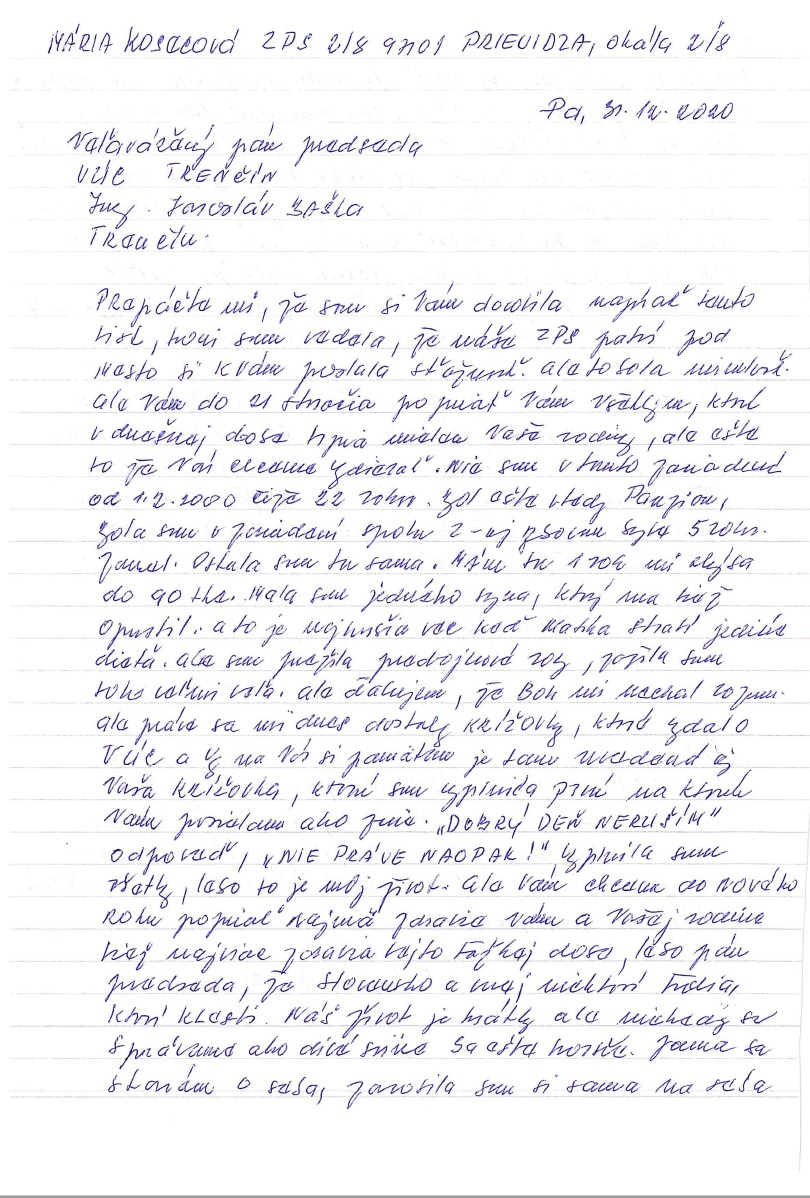 MÁRIA KOSACOVÁ ZPS 2/8 97101 PRIEVIDZA, okála 2/8
Pd, 31.12.2020
Vážený pán predseda
VÚC TRENČÍN
Ing. Jaroslav BAŠKA
Trenčín.
Prepáčte mi, že som si Vám dovolila napísať tento
list, som vedela, že náše ZPS patrí pod
mesto si k Vám poslala sťažnosť. ale to bola minulosť.
ale Vám do 21 storočia popriať Vám všetkým, ktoré
v dnešnej dobe Vaše rodiny, ale ešte
to že Vás chceme. Nie som v tomto zariadení
od 1.2.2000 čiže 22 rokov. bol ešte vtedy Penzion,
bola som v zariadení spolu z 5 rokov.
zomrel. Ostala som tu sama. Mám tu 1 rok mi chýba
do 90 tke. Mala som jedného syna, ktorý ma tiež
opustil. a to je najhoršia vec keď matka stratí jediné
dieťa. ale som prežila predvojnové roky, zažila som
toho veľmi veľa. ale ďakujem, že Boh mi nechal rozum.
ale práve sa mi dnes dostaly KRÍŽOVKY, ktoré vydalo
VÚC a na Vás si pamätám je tam uvedená aj
Vaša KRÍŽOVKA, ktoré som vyplnila prvé na ktoré
Vám posielam ako prvé. „DOBRÝ DEŇ NERUŠÍM"
odpoveď, „NIE PRÁVE NAOPAK!" vyplnila som
všetky, lebo to je môj život. Ale Vám chcem do Nového
roku popriať najmä zdravia Vám a Vašej rodine
tiež najviac zdravia v tejto ťažkej dobe, lebo pán
predseda, že Slovensko a maj niektorí ľudia,
ktorí klesli. Náš život je krátky ale niekedy sa
správame ako divé svine ba ešte horšie. Sama sa
starám o seba, zarobila som si sama na seba